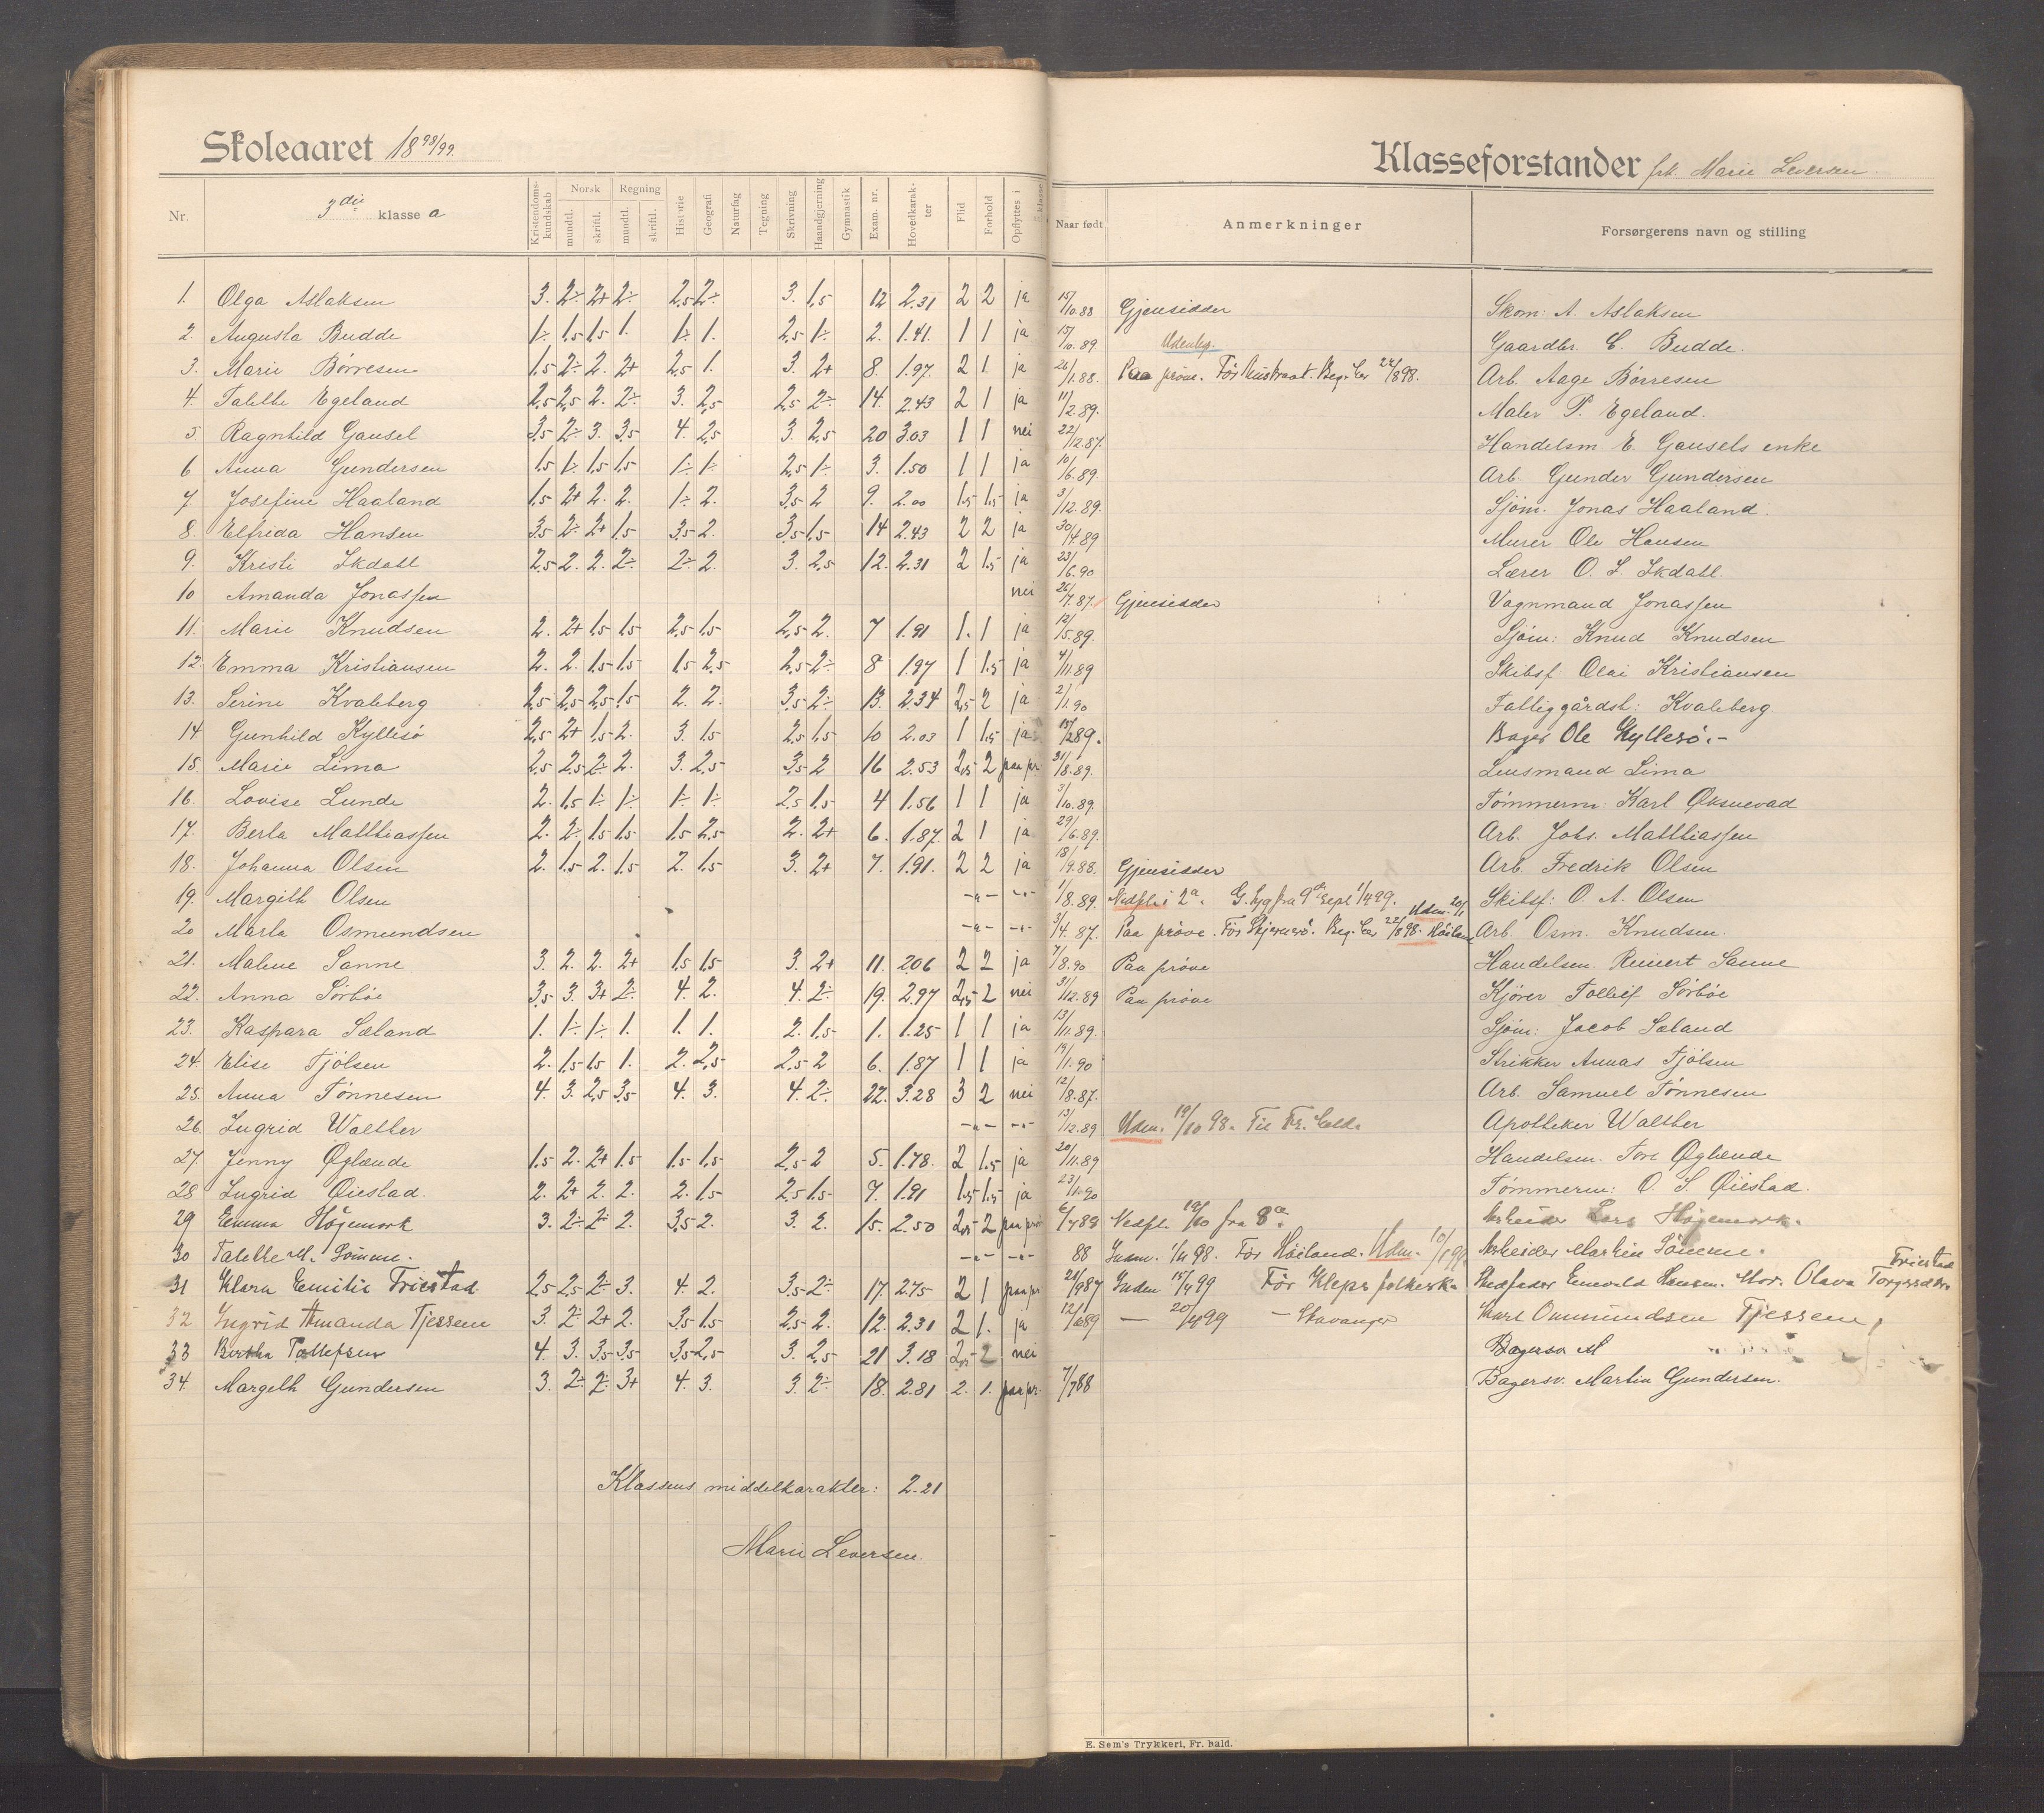 Skoleaaret 1898/99.
Klasseforstander frk. Marie Leversen
Nr. 3die klasse a Kristendomskundskab Norsk mundtl. skriftl. Regning mundtl. skriftl. Historie Geografi Naturfag Tegning Skrivning Haandgjerning Gymnastik Exam. nr. Hovedkarakter Flid Forhold Opflyttes i klasse Naar født Anmerkninger Forsørgerens navn og stilling
1. Olga Aslaksen 3. 2÷ 2+ 2÷ 2,5 2÷ 3. 1,5 12 2.31 2 2 ja 15/10.88 Gjensidder Skom: A. Aslaksen
2. Augusta Budde 1÷ 1,5 1,5 1. 1÷ 1. 2,5 1÷ 2. 1.41 1 1 ja 15/10.89 Gaardbr. C. Budde.
3. Marie Børresen 1,5 2÷ 2. 2+ 2,5 1. 3. 2+ 8. 1.97. 2 1 ja 26/1.88. Paa prøve. Arb. Aage Børresen
4. Talette Egeland 2,5 2,5 2. 2÷ 3. 2,5 2,5 2÷ 14. 2.43 2 1 ja 11/2.89. Maler P. Egeland.
5. Ragnhild Gausel 3,5 2÷ 3. 3,5 4. 2,5 3. 2,5 20 3.03 1 1 nei 22/12.87. Handelsm. E. Gausels enke
6 Anna Gundersen 1,5 1÷ 1,5 1,5 1÷ 1÷ 2,5 1÷ 3. 1.50 1 1 ja 10/6.89. Arb. Gunder Gundersen
7. Josefine Haaland 1,5 2+ 2. 2. 1÷ 2. 3,5 2 9. 2.00 1,5 1,5 ja 3/12.89. Sjøm. Jonas Haaland.
8. Elfrida Hansen 3,5 2÷ 2+ 1,5 3,5 2. 3,5 1,5 14 2.43 2 2 ja 30/4.89 Murer Ole Hansen
9. Kristi Skdahl 2,5 2. 2. 2÷ 2÷ 2. 3. 2,5 12. 2.31 2 1,5 ja 23/6.90 Lærer
10 Amanda Jonassen nei Gjensidder Vognmand Jonassen
11. Marie Knudsen 2. 2+ 1,5 1,5 2,5 1,5 2,5 2. 7 1.91 1. 1 ja 12/5.89. Sjøm: Knud Knudsen
12. Emma Kristiansen 2. 2. 1,5 1,5 1,5 2,5 2,5 2÷ 8 1.97 1 1,5 ja 4/11.89 Skibsf. Olai Kristiansen
13. Serine Kvaleberg 2,5 2,5 2,5 1,5 2. 2. 3,5 2÷ 13. 2.34 2,5 2 ja 2/1.90 Fattiggårdsb: Kvaleberg.
14. Gunhild Kyllesø 2,5 2+ 1,5 2. 3. 1,5 2,5 1,5 10 2.03 1 1,5 ja 15/2 89. Bager Ole Kyllesø.-
15. Marie Lima 2,5 2,5 2÷ 2. 3. 2,5 3,5 2 16 2.53 2,5 2 paa pr 31/8.89. Lensmand Lima
16. Lovise Lunde 2. 1,5 1÷ 1÷ 1÷ 1÷ 2,5 1,5 4 1.56 1 1 ja 3/10.89. Tømmerm: Karl Oksnevad
17. Berta Matthiassen 2. 2÷ 1,5 1,5 1,5 2,5 2. 2+ 6. 1.87. 2 1 ja 29/6.89. Arb. Johs. Matthiassen
18. Johanna Olsen 2. 1,5 2. 1,5 2. 1,5 3. 2+ 7. 1.91. 2 2 ja 18/9.88. Gjensidder Arb. Fredrik Olsen
19. Margith Olsen -"- -"- 1/8.89. Nedfl. i 2a. Skibsf: O. A. Olsen
20 Marta Osmundsen -"- -"- 3/4. 87. Paa prøve. Udm. 20/1 Arb. Osm. Knudsen.
21. Malene Sanne 3. 2. 2. 2+ 1,5 1,5 3. 2+ 11. 2.06 2 2 ja 7/8.90 Paa prøve Handelsm. Reinert Sanne
22. Anna Sørbøe 3,5 3. 3+ 2÷ 4. 2. 4. 2÷ 19. 2.97 2,5 2 nei 31/12.89 Paa prøve Kjører Tolleif Sørbøe
23. Kaspara Sæland 1. 1÷ 1÷ 1. 1. 1. 2. 1,5 1. 1.25 1 1 ja 13/11.89. Sjøm: Jacob Sæland
24. Elise Tjølsen 2. 1,5 1,5 1. 2. 2,5 2,5 2 6. 1.87 1 1 ja 19/1.90 Strikker Annas Tjølsen
25. Anna Tønnesen 4. 3. 2,5 3,5 4. 3. 4. 2÷ 22. 3.28 3 2 nei 12/8.87. Arb. Samuel Tønnesen
26. Ingrid Walther -"- -"- 13/12.89 Udm. 19/10 98. Til Fr. hald. Apotheker Walther
27. Jenny Øglænde 1,5 2. 2+ 1,5 1,5 1,5 2,5 2 5. 1.78. 2 1,5 ja 20/11.89 Handelsm. Tore Øglænde
28 Ingrid Øiestad. 2. 2+ 2. 2. 2. 1,5 2,5 1,5 7. 1.91 1,5 1,5 ja Tømmerm: O. S. Øiestad.
29 Emma Högemork 3. 2÷ 2÷ 2. 3,5 2. 3. 2. 15. 2.50 2,5 2 paa prø Nedfl. 19/10 fra Arbeider Lars Högemork.
30 Talette M. Sömme. -"- -"- 88 Indm. 1/11 98. Før Höiland. Udm. Arbeider Martin Sömme.
31 Klara Emilie Friestad 2,5 2,5 2÷ 3. 4. 2. 3,5 2÷ 17. 2.75 2 1 paa pr 28/9 87 Indm 15/4 99 Før Klepp folkesk. Stedfader Enevald Hansen. Mor. Olava Torgersdtr. Friestad
32. Ingrid Amanda Tjessem 3. 2÷ 2+ 2. 3,5 1,5 2,5 2. 12. 2.31 2 1. ja 12/6 89 — 20/4 99 — Stavanger Karl Ommundsen Tjessem,
33 Bertha Tollefsen 4. 3. 3,5 3,5 3,5 2,5 3. 2,5 21 3.18 2,5 2 nei Bagersv. M
34. Margith Gundersen 3. 2÷ 2÷ 3+ 4. 3. 3. 2÷ 18. 2.81 2. 1. paa pr. 7/7 88 Bagersv. Martin Gundersen.
Klassens middelkarakter: 2.21
Marie Leversen.
E. Sem's Trykkeri, Fr. hald.